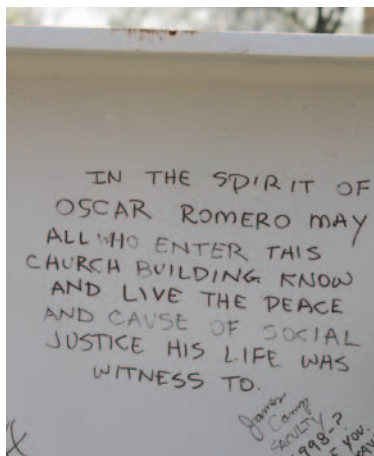 IN THE SPIRIT OF
OSCAR ROMERO MAY
ALL WHO ENTER THIS
CHURCH BUILDING KNOW
AND LIVE THE PEACE
AND CAUSE OF SOCIAL
JUSTICE HIS LIFE WAS
WITNESS TO.
James
Camp
FACULTY
1998-?
YOU.